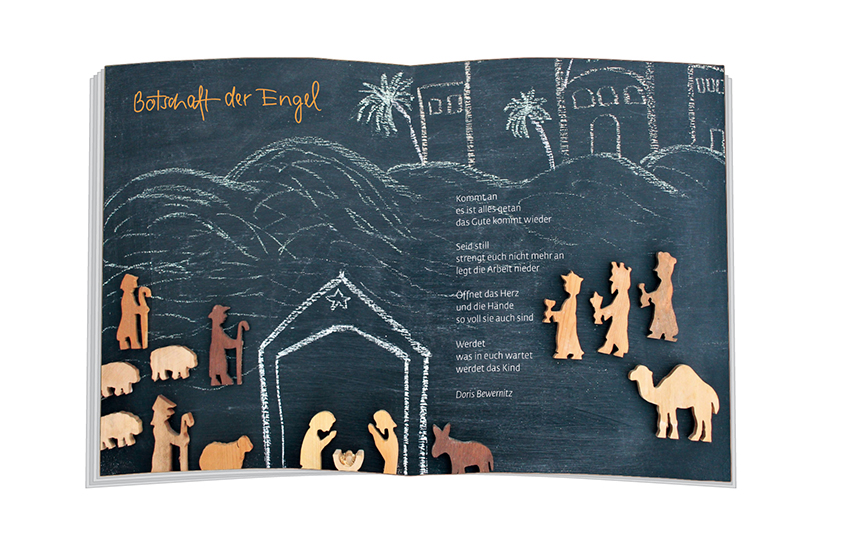 Botschaft der Engel
Kommt an
es ist alles getan
das Gute kommt wieder
Seid still
strengt euch nicht mehr an
legt die Arbeit nieder
Öffnet das Herz
und die Hände
so voll sie auch sind
Werdet
was in euch wartet
werdet das Kind
Doris Bewernitz